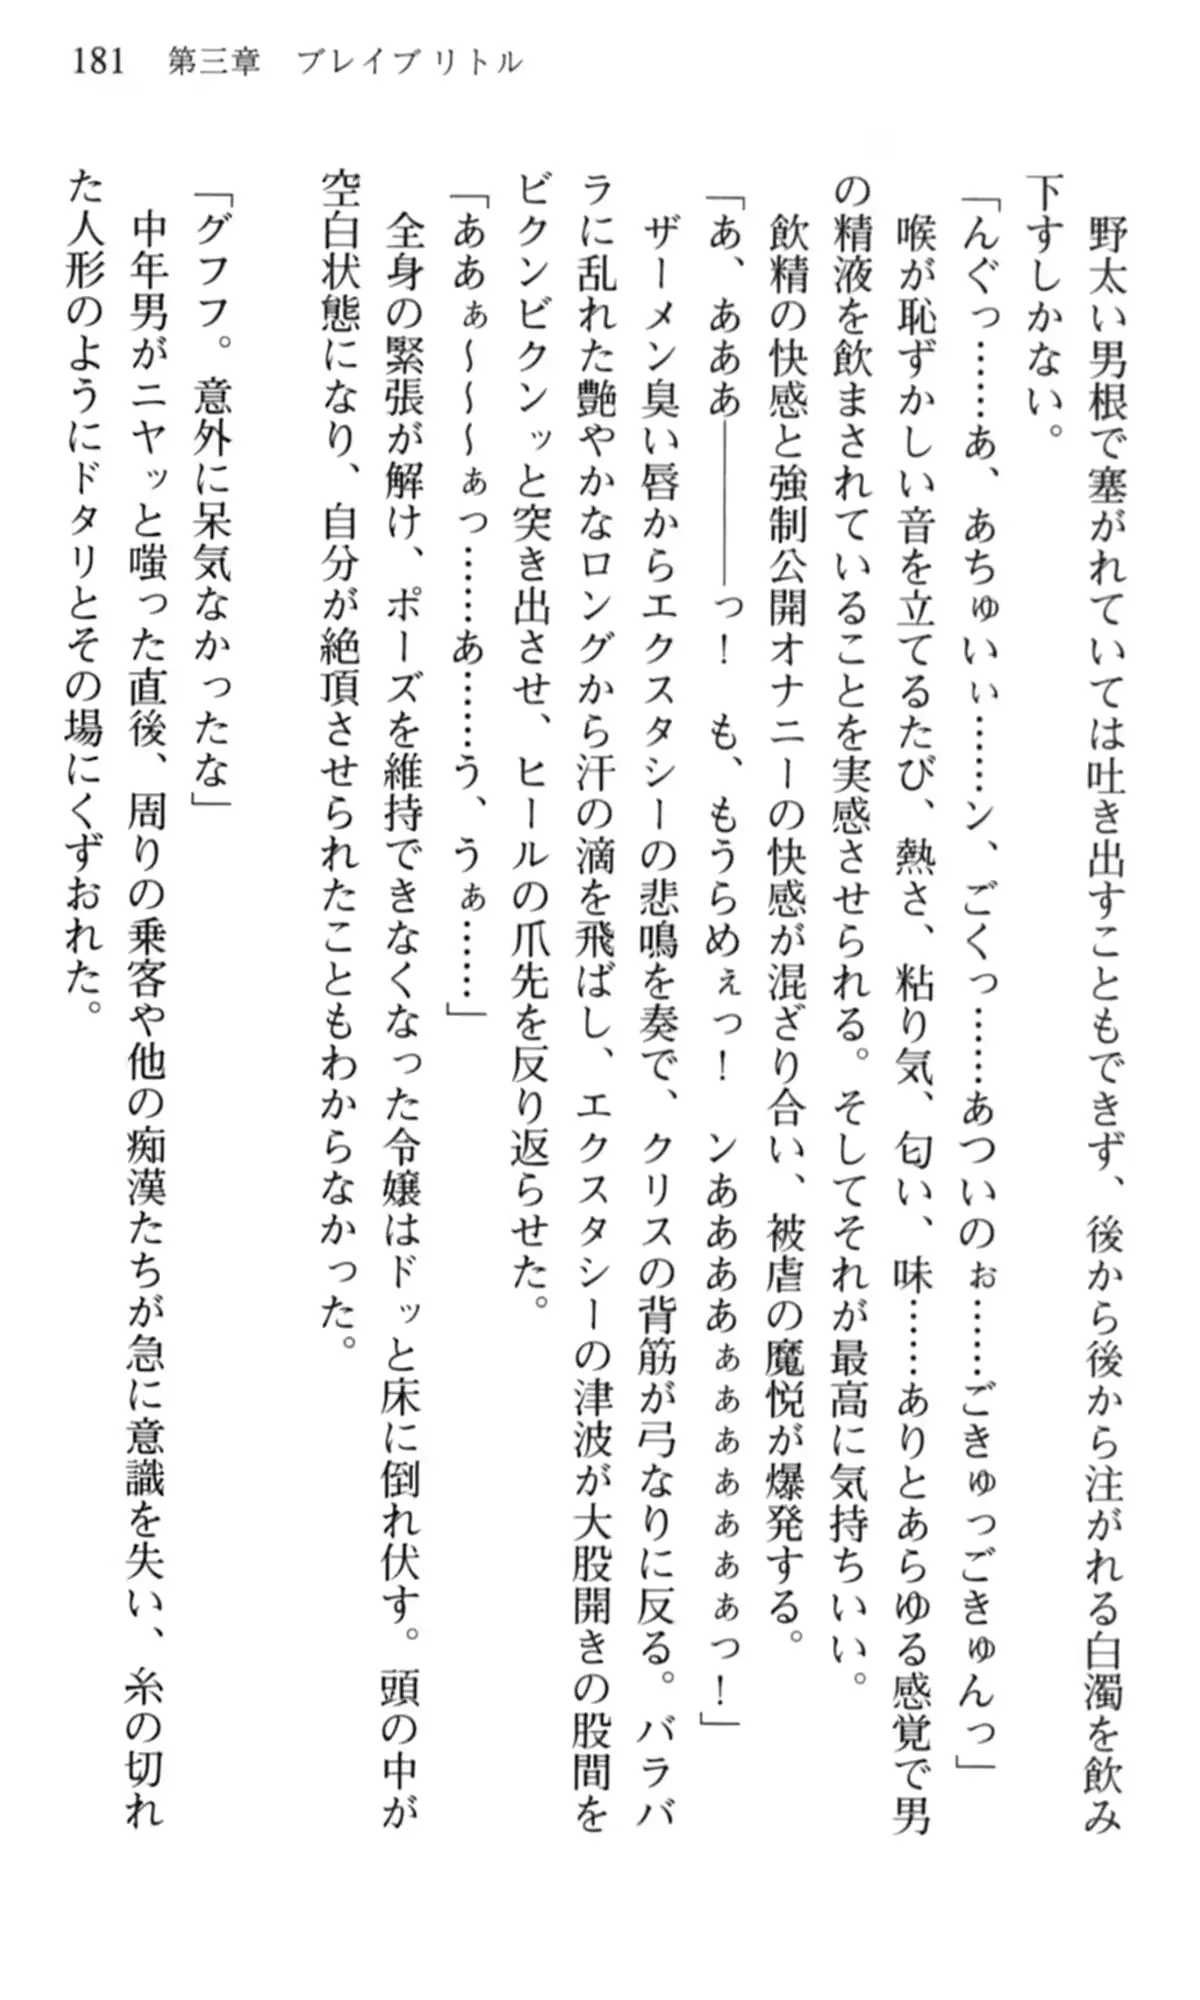 181 第三章 ブレイブ リトル
野太い男根で塞がれていては吐き出すこともできず、後から後から注がれる白濁を飲み
下すしかない。
「んぐっ……あ、あちゅいぃ……ン、ごくっ……あついのぉ……ごきゅっごきゅんっ」
喉が恥ずかしい音を立てるたび、熱さ、粘り気、匂い、味……ありとあらゆる感覚で男
の精液を飲まされていることを実感させられる。そしてそれが最高に気持ちいい。
飲精の快感と強制公開オナニーの快感が混ざり合い、被虐の魔悦が爆発する。
「あ、あああ――――っ！　も、もうらめぇっ！　ンああああぁぁぁぁぁぁぁっ！」
ザーメン臭い唇からエクスタシーの悲鳴を奏で、クリスの背筋が弓なりに反る。バラバ
ラに乱れた艶やかなロングから汗の滴を飛ばし、エクスタシーの津波が大股開きの股間を
ビクンビクンッと突き出させ、ヒールの爪先を反り返らせた。
「ああぁ～～～ぁっ……あ……う、うぁ……」
全身の緊張が解け、ポーズを維持できなくなった令嬢はドッと床に倒れ伏す。頭の中が
空白状態になり、自分が絶頂させられたこともわからなかった。
「グフフ。意外に呆気なかったな」
中年男がニヤッと嗤った直後、周りの乗客や他の痴漢たちが急に意識を失い、糸の切れ
た人形のようにドタリとその場にくずおれた。